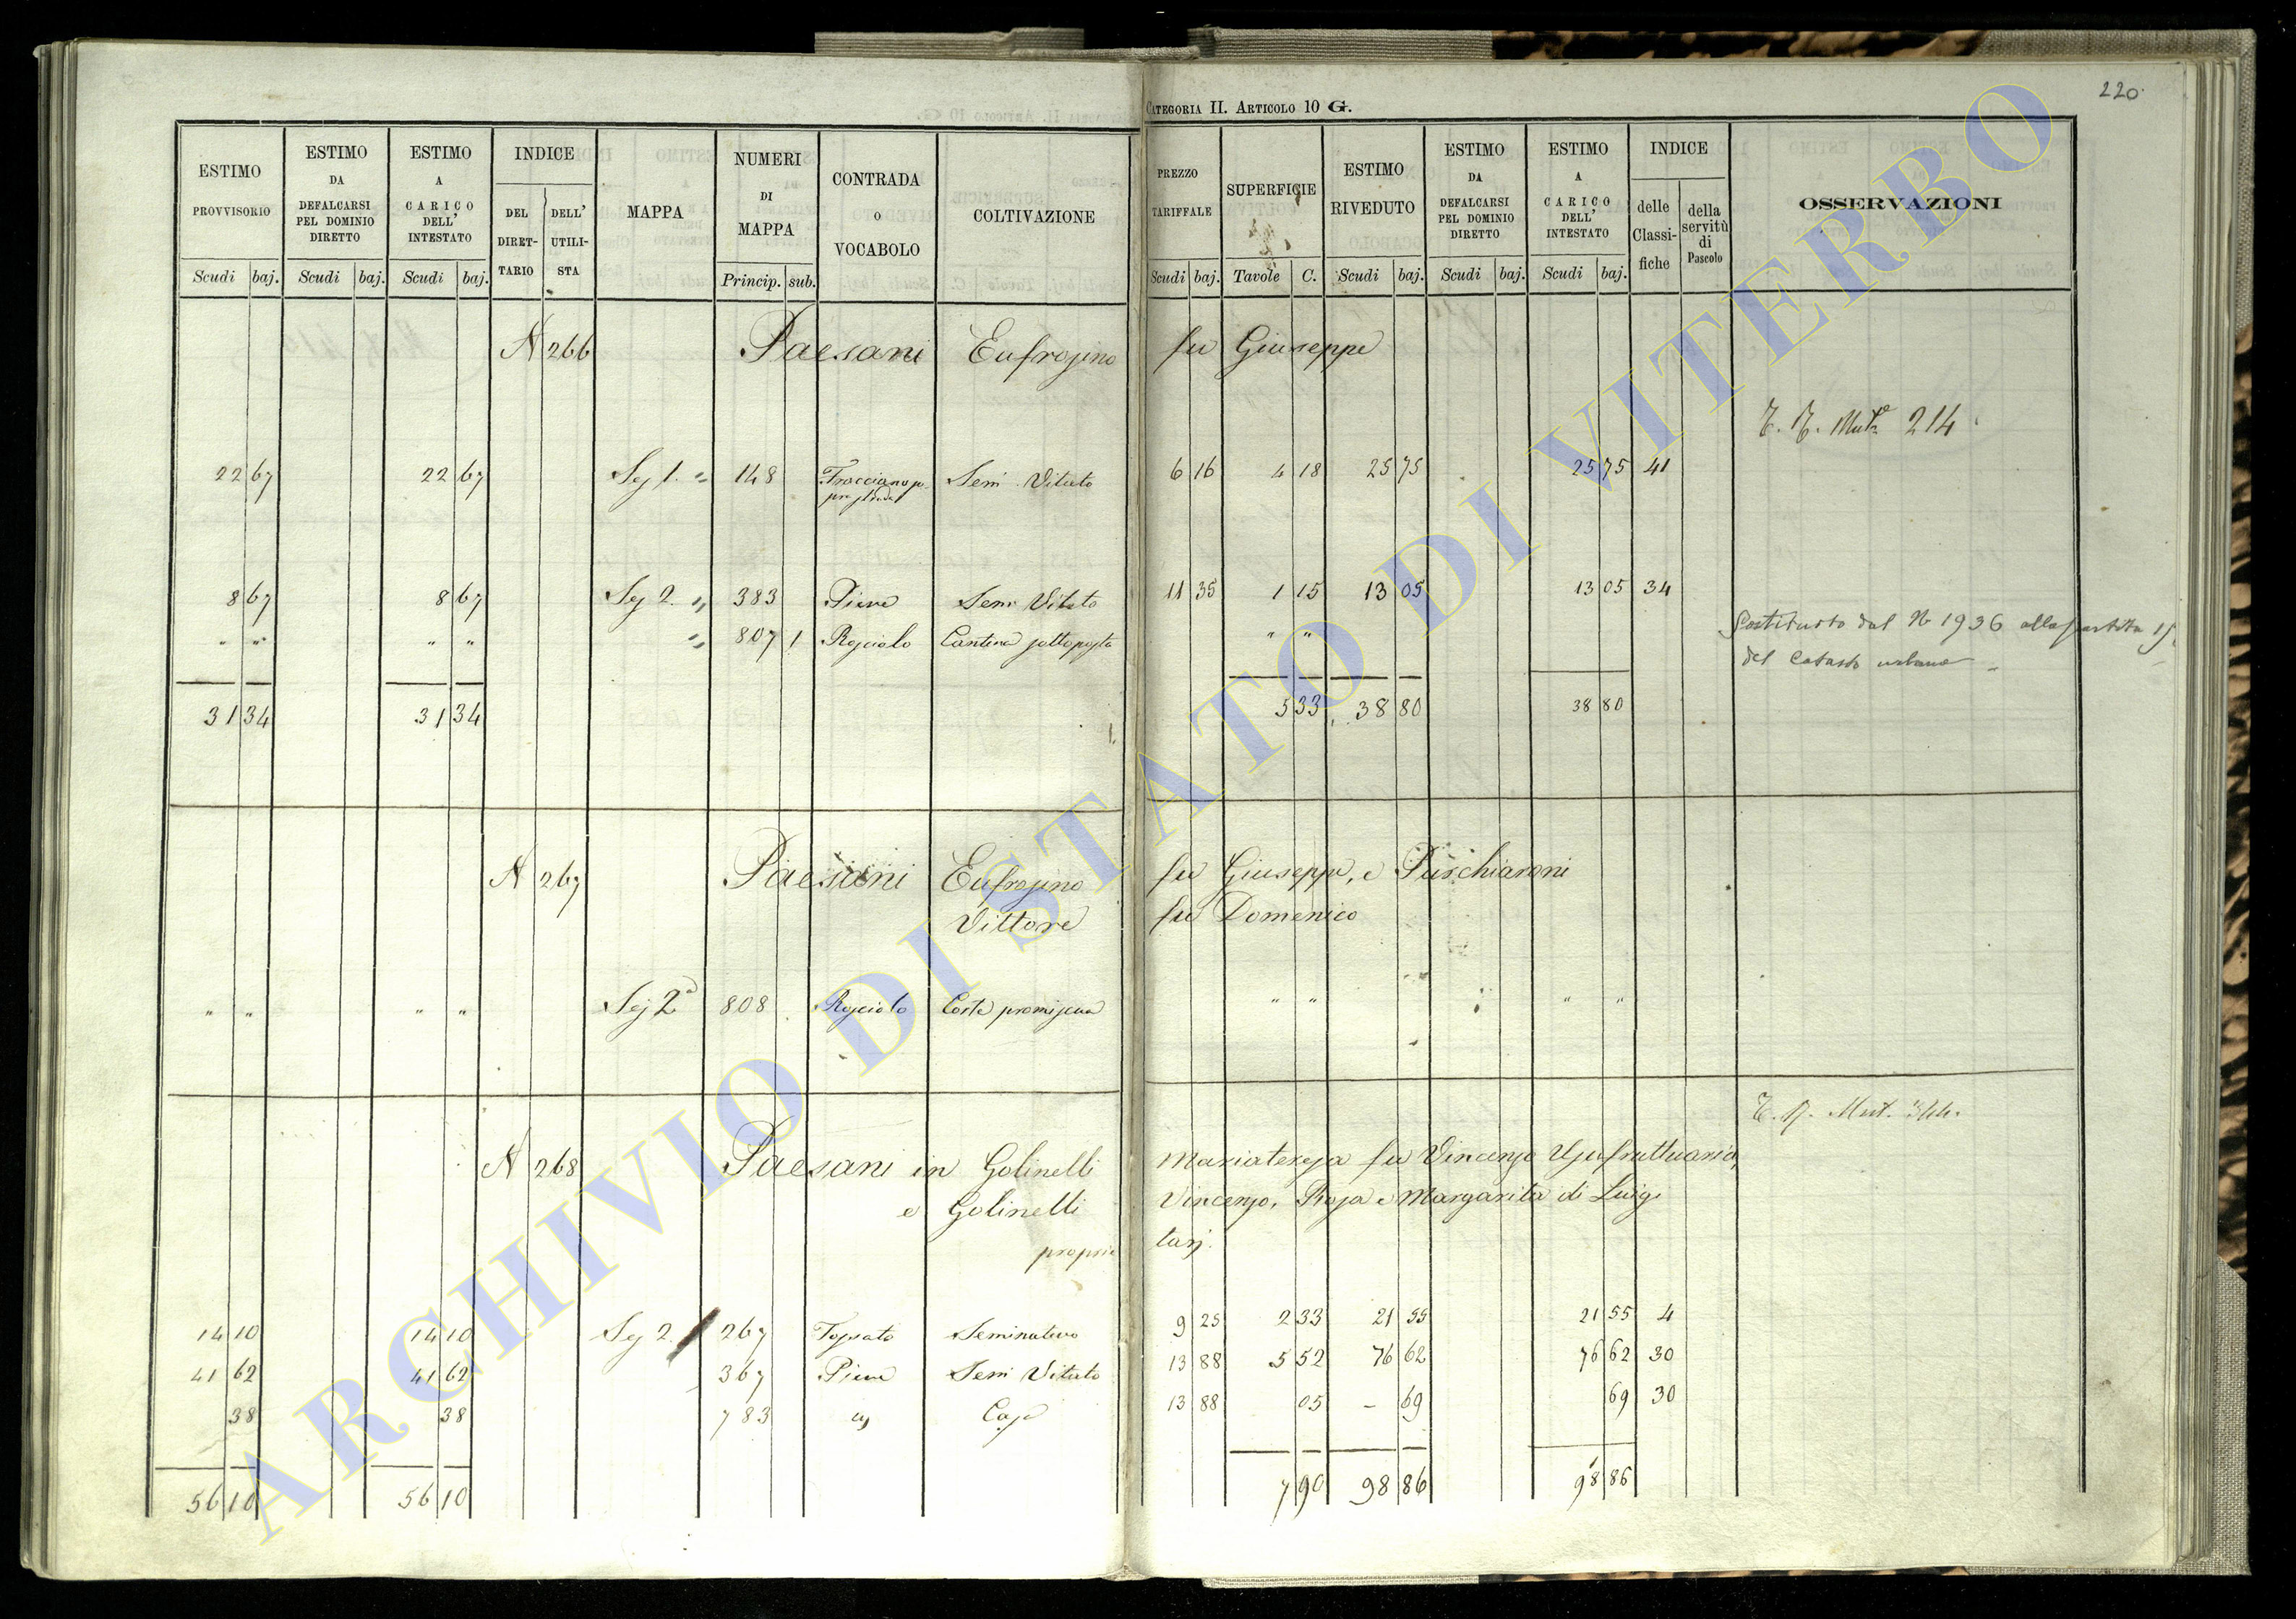 220.
CATEGORIA II. ARTICOLO 10 G.
ESTIMO PROVVISORIO Scudi baj.
ESTIMO DA DEFALCARSI PEL DOMINIO DIRETTO Scudi baj.
ESTIMO A CARICO DELL' INTESTATO Scudi baj.
INDICE DEL DIRET- TARIO DELL' UTILI- STA
MAPPA
NUMERI DI MAPPA Princip. sub.
CONTRADA O VOCABOLO
COLTIVAZIONE
PREZZO TARIFFALE Scudi baj.
SUPERFICIE Tavole C.
ESTIMO RIVEDUTO Scudi baj.
ESTIMO DA DEFALCARSI PEL DOMINIO DIRETTO Scudi baj.
ESTIMO A CARICO DELL' INTESTATO Scudi baj.
INDICE delle Classi- fiche della servitù di Pascolo
OSSERVAZIONI
N 266 Paesani Eufrosino fu Giuseppe
214
22 67 22 67 Sez 1. " 148 Sem Vitato 6 16 4 18 25 75 25 75 41
8 67 8 67 Sez 2. " 383 Pieve Sem Vitato 11 35 1 15 13 05 13 05 34
" " " " " 807 1 Rosciolo Cantina sottoposta " "
Sostituito dal N 1936 alla partita
del Catasto urbano
31 34 31 34 5 33 38 80 38 80
N 267 Paesani Eufrosino fu Giuseppe, e Puschiaroni
Vittore fu Domenico
" " " " Sez 2ª 808 Rosciolo Corte promiscua " " " "
T. N. Mut. 344.
N 268 Paesani in Golinelli Mariateresa fu Vincenzo Usufruttuaria,
e Golinelli Vincenzo, Rosa e Margarita di Luigi
proprietarj.
14 10 14 10 Sez 2. 267 Seminativo 9 25 2 33 21 55 21 55 4
41 62 41 62 367 Pieve Sem Vitato 13 88 5 52 76 62 76 62 30
38 38 783 Casa 13 88 05 - 69 69 30
56 10 56 10 7 90 98 86 98 86
ARCHIVIO DI STATO DI VITERBO